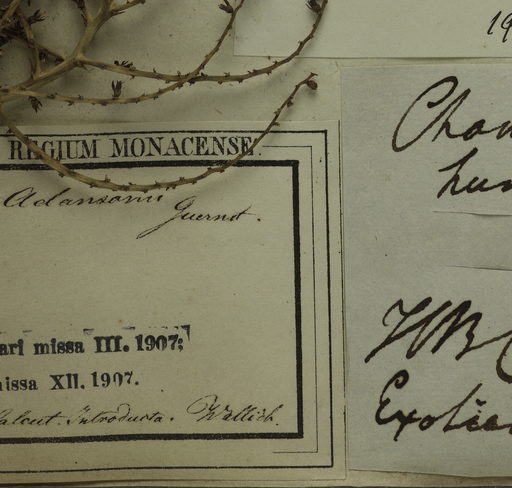 19
REGIUM MONACENSE.
Adansonii
Guernst.
ari missa III. 1907;
issa XII. 1907.
alcut. Introducta. Wallich.
Cham
hum
HBC
Exotica